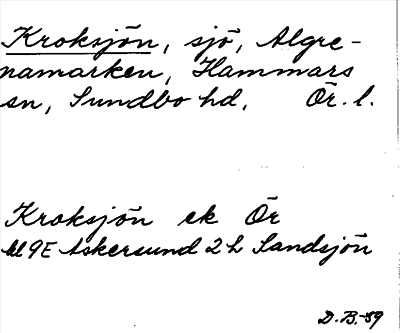 Kroksjön, sjö, Algre-
namarken, Hammars
sn, Sundbo hd, Ör. l.
Kroksjön ek Ör
bl 9E Askersund 2 h Sandsjön
D.B.-89